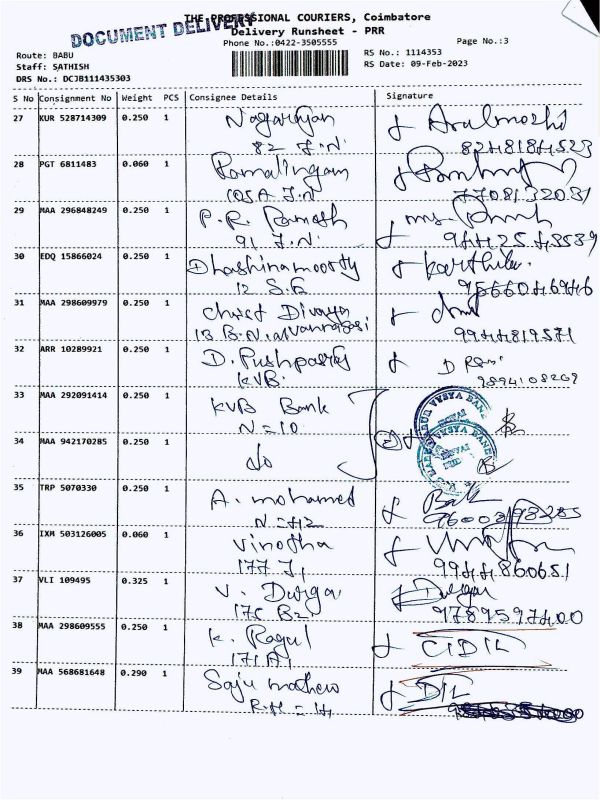 THE PROFESSIONAL COURIERS, Coimbatore
DOCUMENT DELIVERY
Delivery Runsheet - PRR
Phone No.:0422-3505555
Page No.:3
Route: BABU
RS No.: 1114353
Staff: SATHISH
RS Date: 09-Feb-2023
DRS No.: DCJB111435303
S No Consignment No Weight PCS Consignee Details Signature
27 KUR 528714309 0.250 1 Nagarajan
82 J.N
28 PGT 6811483 0.060 1 Ramalingam
105A J.N
7708132031
29 MAA 296848249 0.250 1 P.R. Ramesh
91 J.N
30 EDQ 15866024 0.250 1 Dhashinamoorty Karthik
12 S.B
31 MAA 298609979 0.250 1 Christ Divaya
13 B.N.
9944819571
32 ARR 10289921 0.250 1 D. Pushparaj
KVB
9894108269
33 MAA 292091414 0.250 1 KVB Bank
N=10
VYSYA BANK
34 MAA 942170285 0.250 1 do
VYSYA BANK
35 TRP 5070330 0.250 1 A. mohamed
N=42
36 IXM 503126005 0.060 1 Vinotha
177 J,
9944860651
37 VLI 109495 0.325 1 V. Durga Durga
17C B2
9789597400
38 MAA 298609555 0.250 1 K. Ragul
171 A1
39 MAA 568681648 0.290 1 Saju mathew
R.H = H,